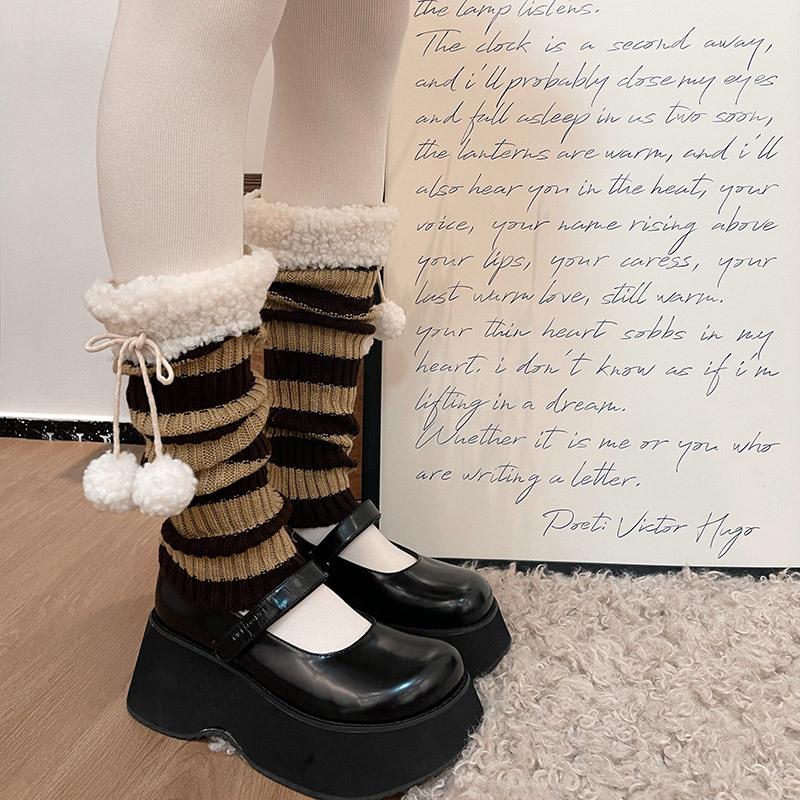 the lamp listens.
The clock is a second away,
and i'll probably close my eyes
and fall asleep in us two soon,
the lanterns are warm, and i'll
also hear you in the heat, your
voice, your name rising above
your lips, your caress, your
last warm love, still warm.
your thin heart sobbs in my
heart. i don't know as if i'm
lifting in a dream.
Whether it is me or you who
are writing a letter.
Poeti Victor Hugo